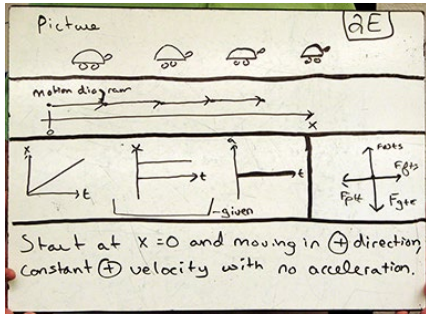 Picture
2E
motion diagram
0
x
x
t
x
t
a
t
given
Start at x = 0 and moving in ⊕ direction,
constant ⊕ velocity with no acceleration.